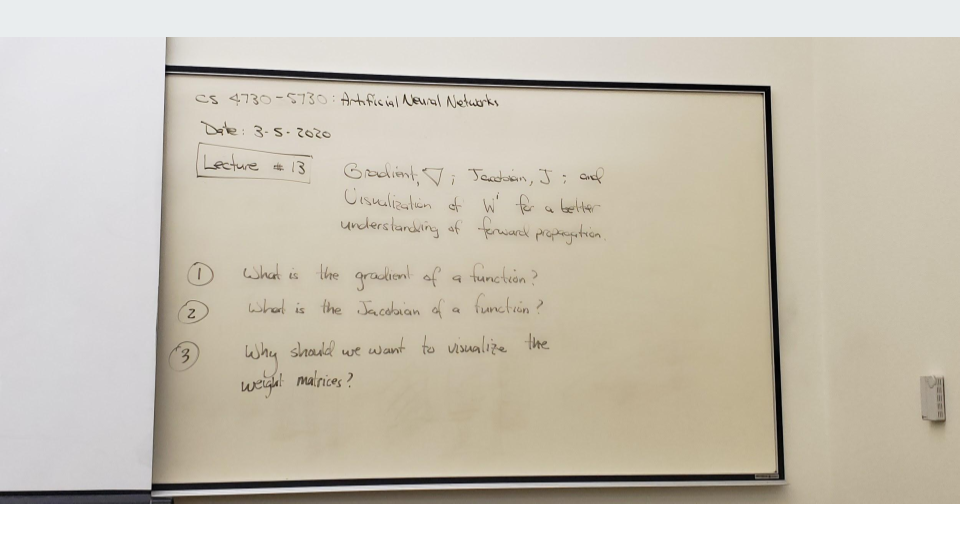 CS 4730-5730: Artificial Neural Networks
Date: 3-5-2020
Lecture # 13
Gradient, ∇; Jacobian, J; and
Visualization of W' for a better
understanding of forward propagation.
① What is the gradient of a function?
② What is the Jacobian of a function?
③ Why should we want to visualize the
weight matrices?